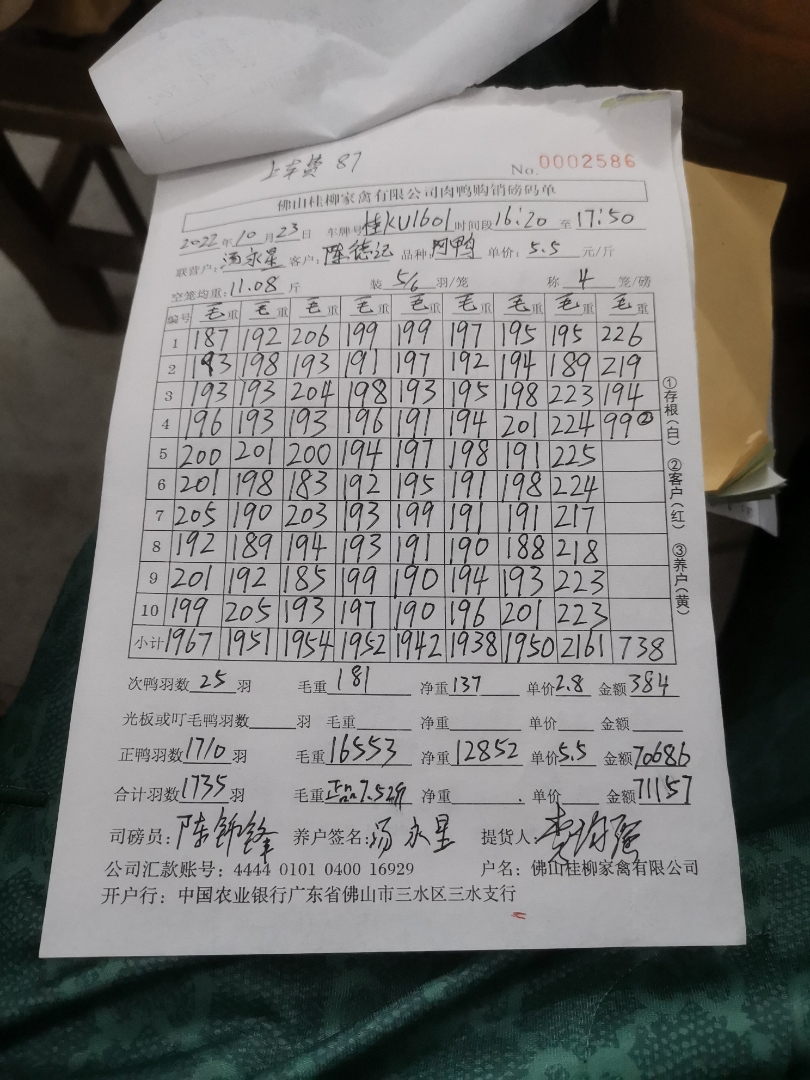 上车费 87
No. 0002586
佛山桂柳家禽有限公司肉鸭购销磅码单
2022年10月23日 车牌号桂KU1601时间段16:20至17:50
联营户:汤永星 客户:陈德记 品种 阿鸭 单价:5.5 元/斤
空笼均重:11.08斤 装5/6羽/笼 称4笼/磅
编号 毛重 毛重 毛重 毛重 毛重 毛重 毛重 毛重 毛重
1 187 192 206 199 199 197 195 195 226
2 193 198 193 191 197 192 194 189 219
3 193 193 204 198 193 195 198 223 194
4 196 193 193 196 191 194 201 224 99②
5 200 201 200 194 197 198 191 225
6 201 198 183 192 195 191 198 224
7 205 190 203 193 199 191 191 217
8 192 189 194 193 191 190 188 218
9 201 192 185 199 190 194 193 223
10 199 205 193 197 190 196 201 223
小计 1967 1951 1954 1952 1942 1938 1950 2161 738
①存根(白) ②客户(红) ③养户(黄)
次鸭羽数25羽 毛重181 净重137 单价2.8 金额384
光板或叮毛鸭羽数 羽 毛重 净重 单价 金额
正鸭羽数1710羽 毛重16553 净重12852 单价5.5 金额70686
合计羽数1735羽 毛重正品7.52斤 净重 . 单价 金额71157
司磅员: 养户签名:汤永星 提货人:
公司汇款账号: 4444 0101 0400 16929 户名: 佛山桂柳家禽有限公司
开户行: 中国农业银行广东省佛山市三水区三水支行